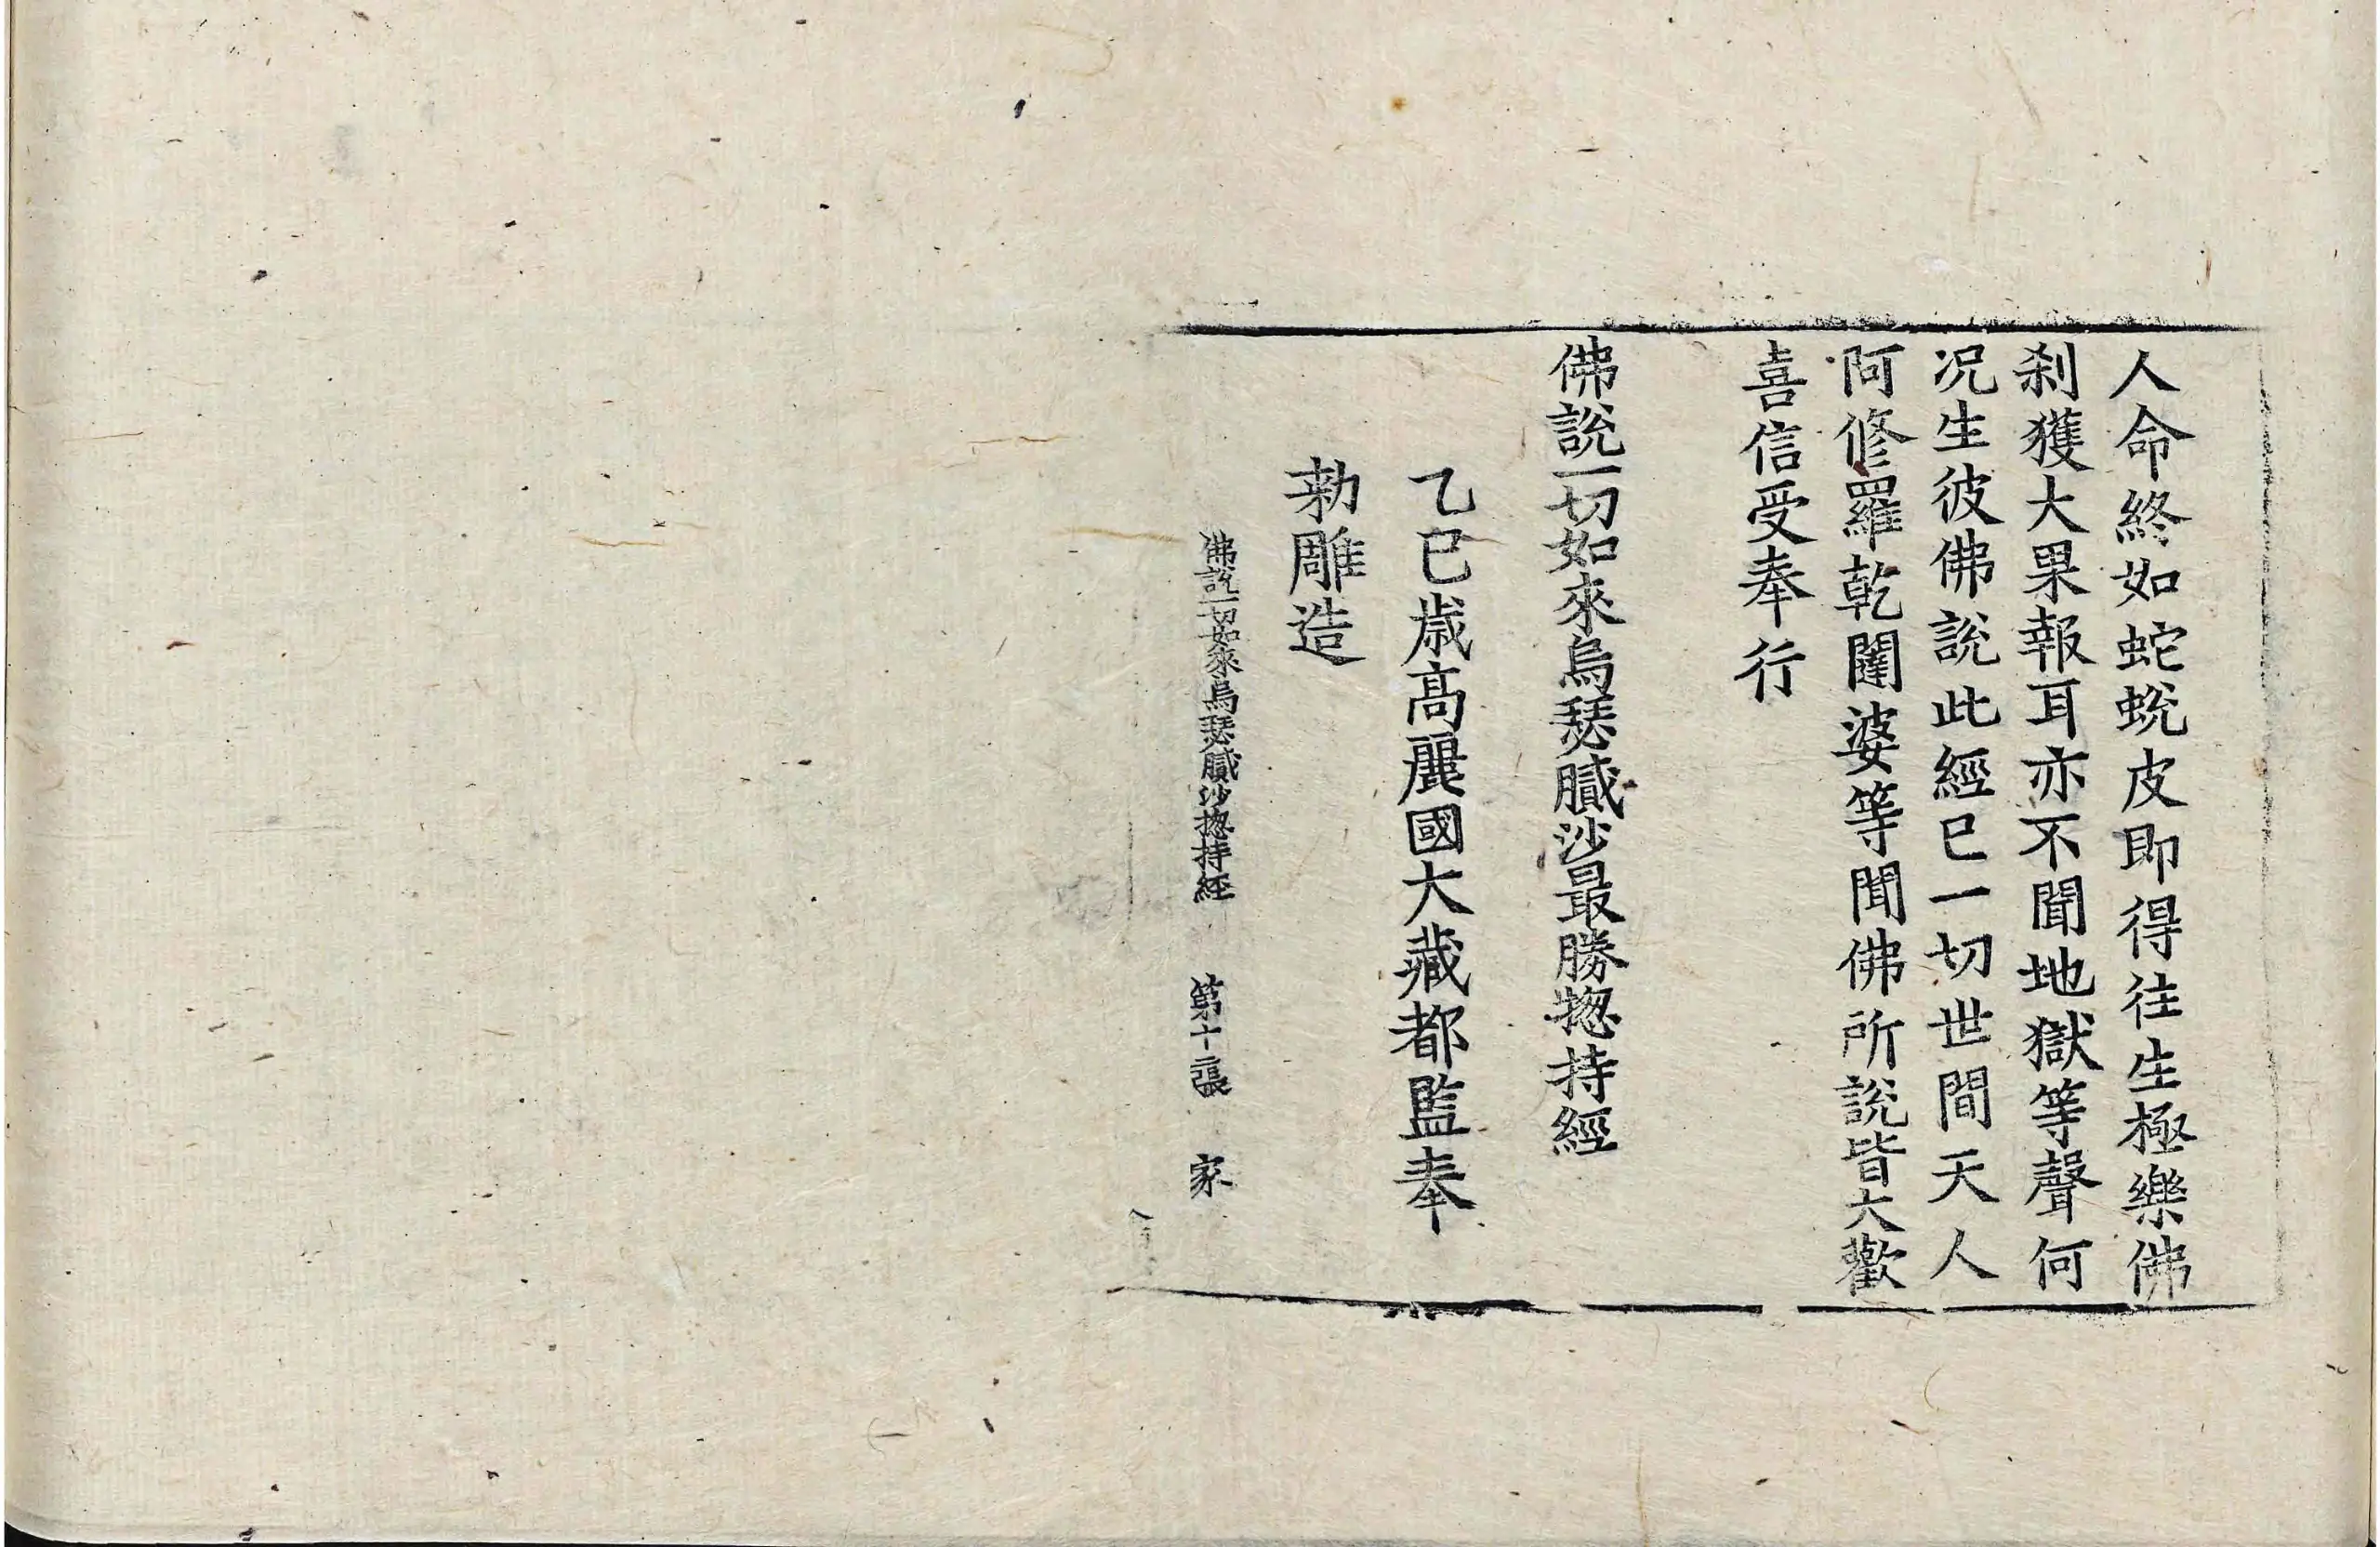 人命終如蛇蛻皮即得往生極樂佛
刹獲大果報耳亦不聞地獄等聲何
况生彼佛說此經已一切世間天人
阿修羅乾闥婆等聞佛所說皆大歡
喜信受奉行
佛說一切如來烏瑟膩沙最勝捴持經
乙巳歲高麗國大藏都監奉
勑雕造
佛說一切如來烏瑟膩沙捴持經 第十二張 家